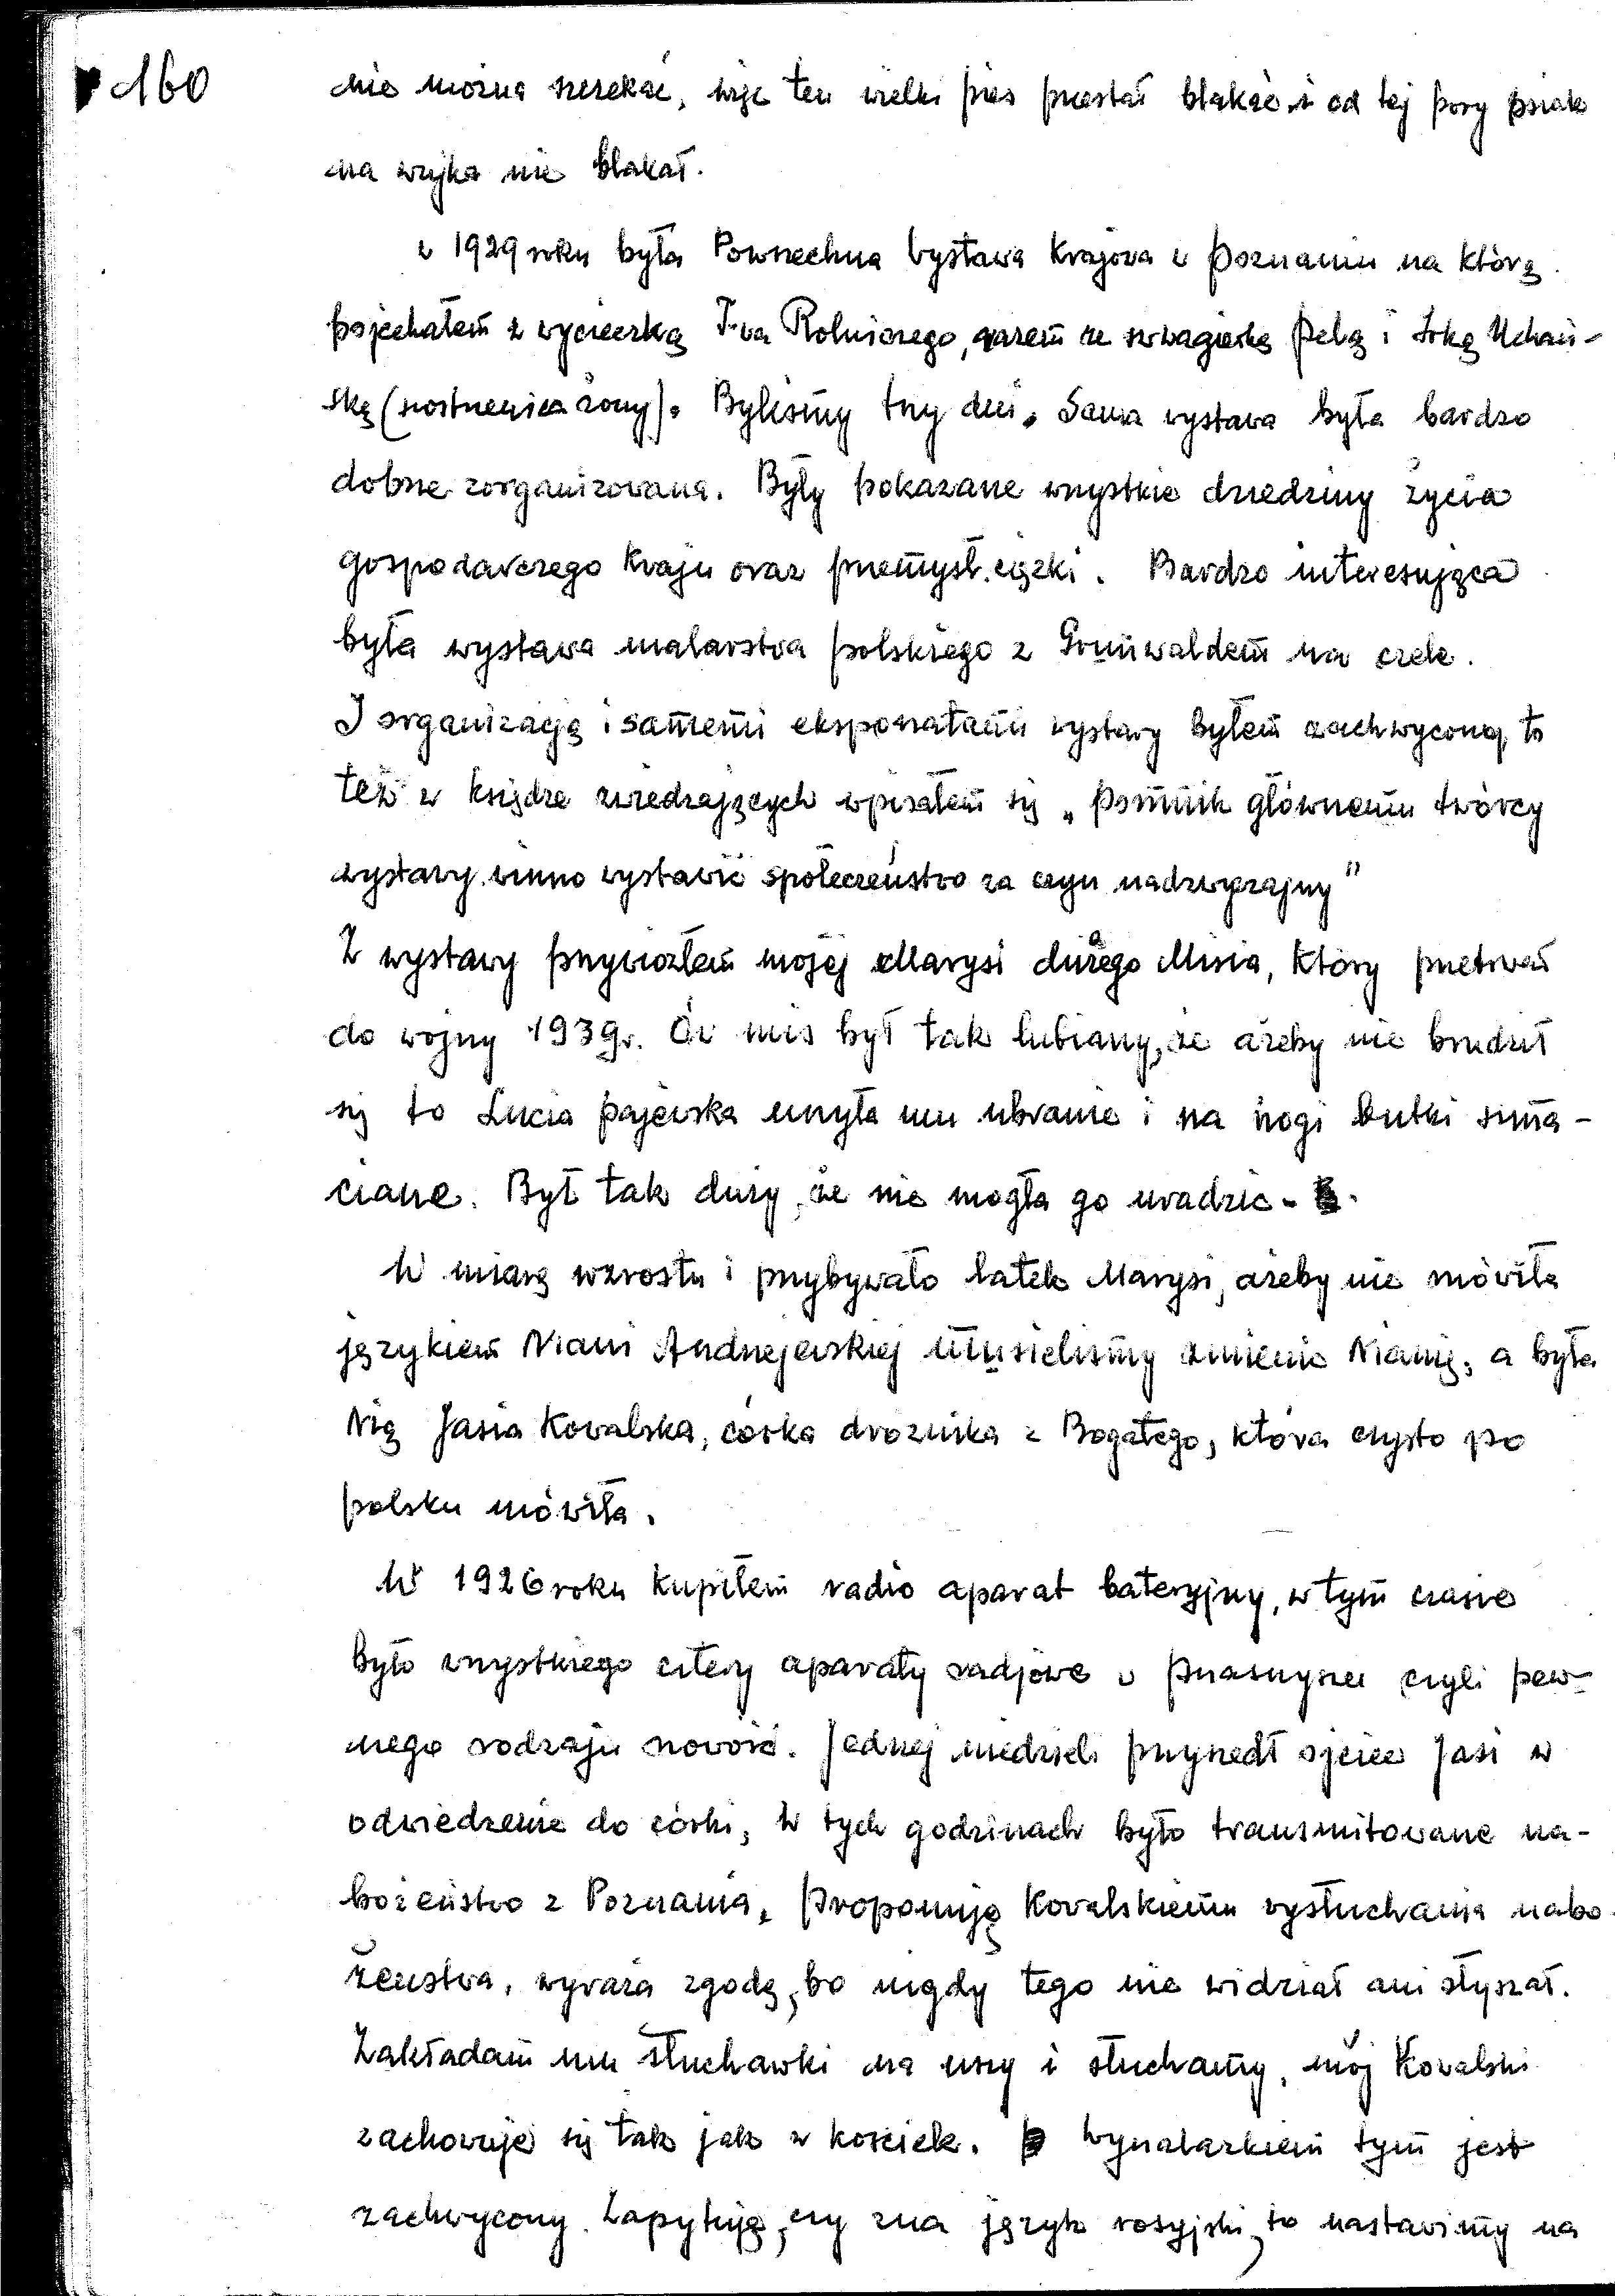 160
nie można szczekać, więc ten wielki pies przestał blakać i od tej pory psiak
na wujka nie blakał.
w 1929 roku była Powszechna Wystawa Krajowa w Poznaniu na którą
pojechałem z wycieczką T-wa Rolniczego, razem ze szwagierką Pelą i Lolą Uchań-
ską (siostrzenica żony). Byliśmy trzy dni. Sama wystawa była bardzo
dobrze zorganizowana. Były pokazane wszystkie dziedziny życia
gospodarczego kraju oraz przemysł ciężki. Bardzo interesująca
była wystawa malarstwa polskiego z Grunwaldem na czele.
I organizacją i samemi eksponatami wystawy byłem zachwycony, to
też w księdze zwiedzających wpisałem się „Pomnik głównemu twórcy
wystawy winno wystawić społeczeństwo za czyn nadzwyczajny"
Z wystawy przywiozłem mojej Marysi dużego Misia, który przetrwał
do wojny 1939r. Ów miś był tak lubiany, że ażeby nie brudził
się to Lucia Pajewska uszyła mu ubranie i na nogi butki szma-
ciane. Był tak duży, że nie mogła go uradzić -
W miarę wzrostu i przybywało latek Marysi, ażeby nie mówiła
językiem Niani Andrzejewskiej musieliśmy zmienić Nianię, a była
Nią Jasia Kowalska, córka dróżnika z Bogatego, która czysto po
polsku mówiła.
W 1926 roku kupiłem radio aparat bateryjny, w tym czasie
było wszystkiego cztery aparaty radjowe w Przasnyszu czyli pew-
nego rodzaju nowość. Jednej niedzieli przyszedł ojciec Jasi w
odwiedzenie do córki, w tych godzinach było transmitowane na-
bożeństwo z Poznania, proponuję Kowalskiemu wysłuchania nabo-
żeństwa, wyraża zgodę, bo nigdy tego nie widział ani słyszał.
Zakładam mu słuchawki na uszy i słuchamy, mój Kowalski
zachowuje się tak jak w kościele. Wynalazkiem tym jest
zachwycony. Zapytuję, czy zna język rosyjski, to nastawimy na